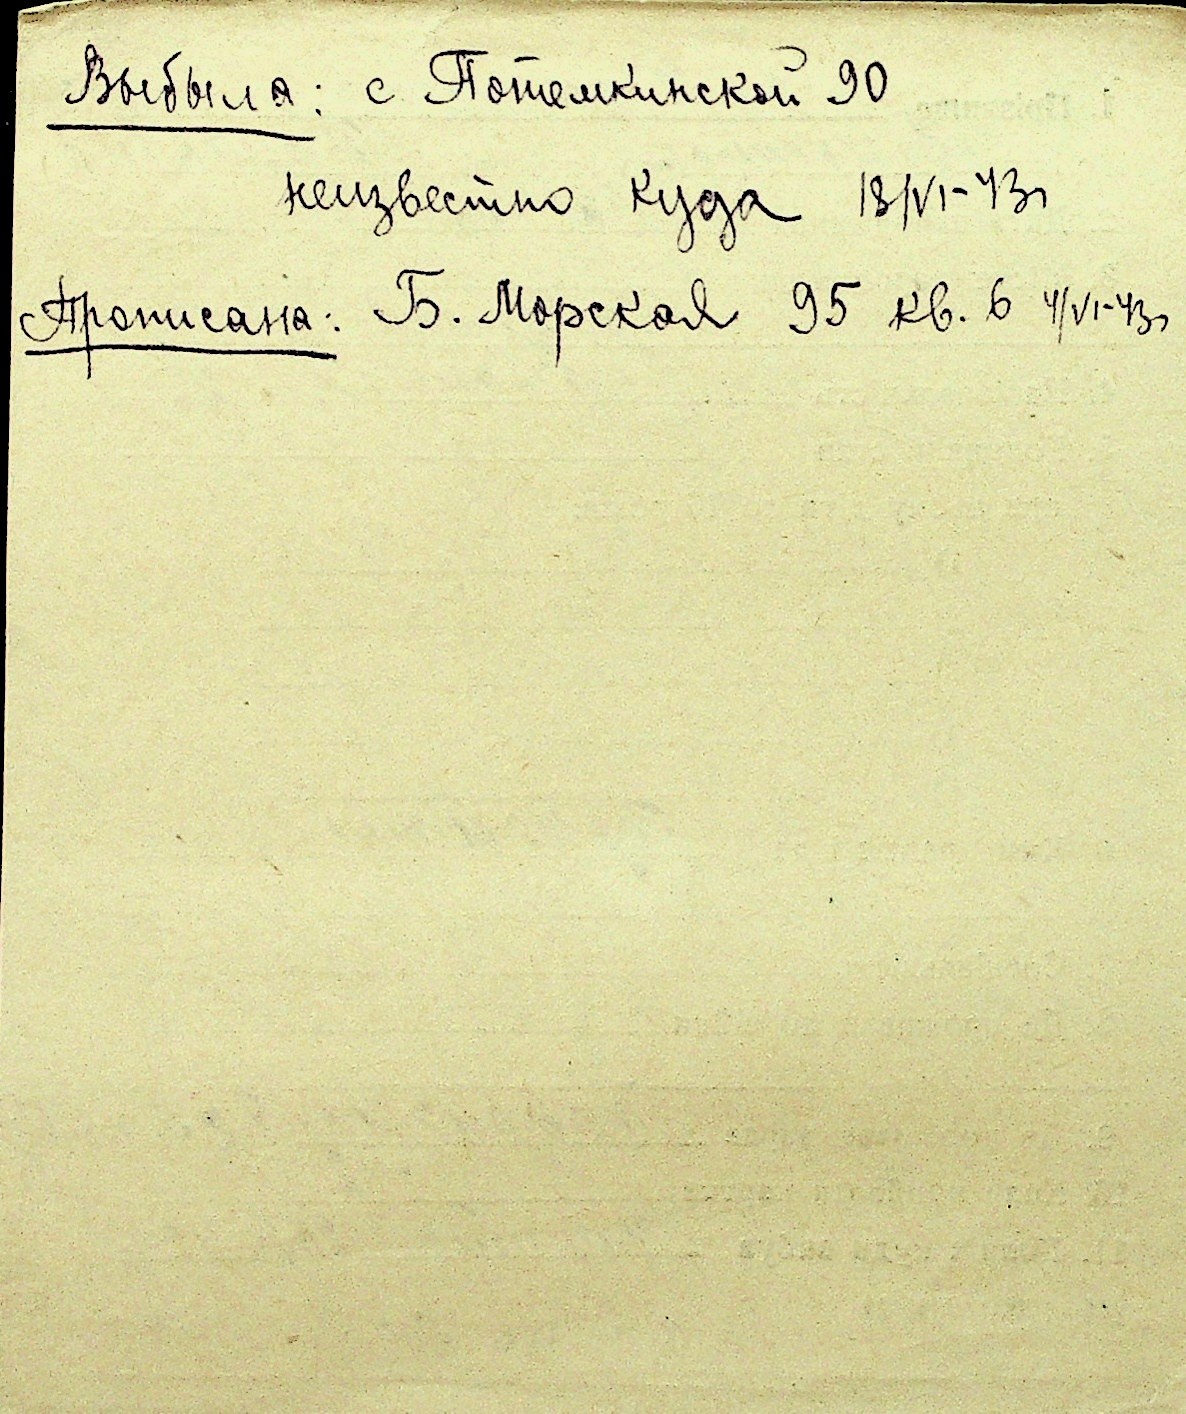 Выбыла: с Потемкинской 90
неизвестно куда 18/VI-43г
Прописана: Б. Морская 95 кв. 6 4/VI-43г